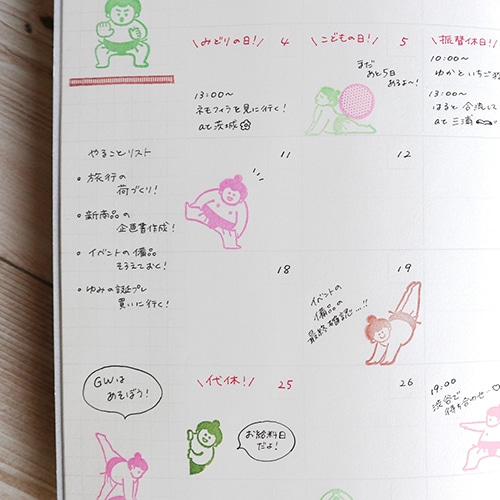 \みどりの日!/ 4
13:00〜
ネモフィラを見に行く!
at 茨城
\こどもの日!/ 5
まだ
あと5日
あるよ〜!
\振替休日!/
10:00〜
ゆかといちご
13:00〜
はると 合流して
at 三浦
やることリスト
• 旅行の
荷づくり!
• 新商品の
企画書作成!
• イベントの備品
そろえておく!
• ゆみの誕プレ
買いに行く!
11
12
18
19
イベントの
備品の
最終確認…!!
GWは
あそぼう!
\代休!/ 25
お給料日
だよ!
26
19:00
渋谷で
待ち合わせ〜♡